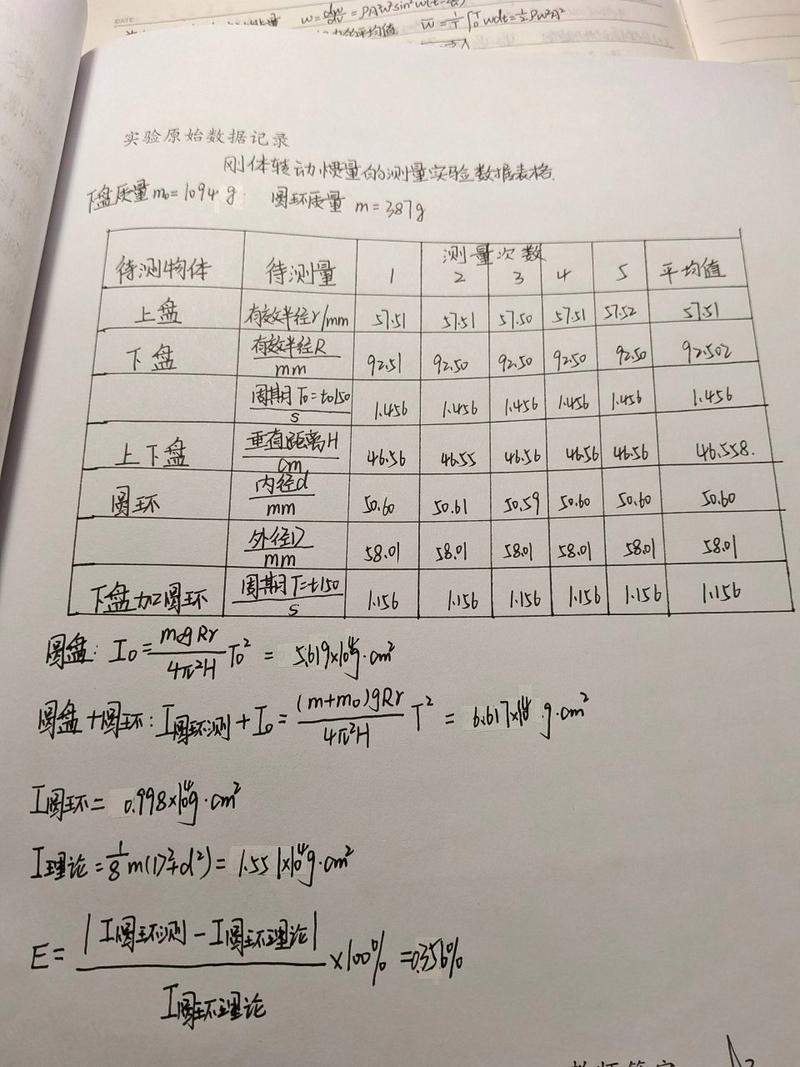 DATE:
W=dw/dv=ρAW²sin²w(t-
的平均值 W̄=1/T∫₀ᵀWdt=½ρW²A²
实验原始数据记录
刚体转动惯量的测量实验数据表格.
下盘质量m₀=1094 g 圆环质量 m=387g
待测物体 待测量 测量次数 平均值
1 2 3 4 5
上盘 有效半径r/mm 57.51 57.51 57.50 57.51 57.52 57.51
下盘 有效半径R/mm 92.51 92.50 92.50 92.50 92.50 92.502
周期T₀=t₀/50/s 1.456 1.456 1.456 1.456 1.456 1.456
上下盘 垂直距离H/cm 46.56 46.55 46.56 46.56 46.56 46.558.
圆环 内径d/mm 50.60 50.61 50.59 50.60 50.60 50.60
外径D/mm 58.01 58.01 58.01 58.01 58.01 58.01
下盘加圆环 周期T=t/50/s 1.156 1.156 1.156 1.156 1.156 1.156
圆盘: I₀=m₀gRr/4π²H T₀² = 5.619×10⁴g·cm²
圆盘+圆环: I圆环测+I₀=(m+m₀)gRr/4π²H T² = 6.617×10⁴ g·cm²
I圆环= 0.998×10⁴g·cm²
I理论=⅛m(D²+d²)= 1.551×10⁴g·cm²
E=|I圆环测-I圆环理论|/I圆环理论×100% =0.356%